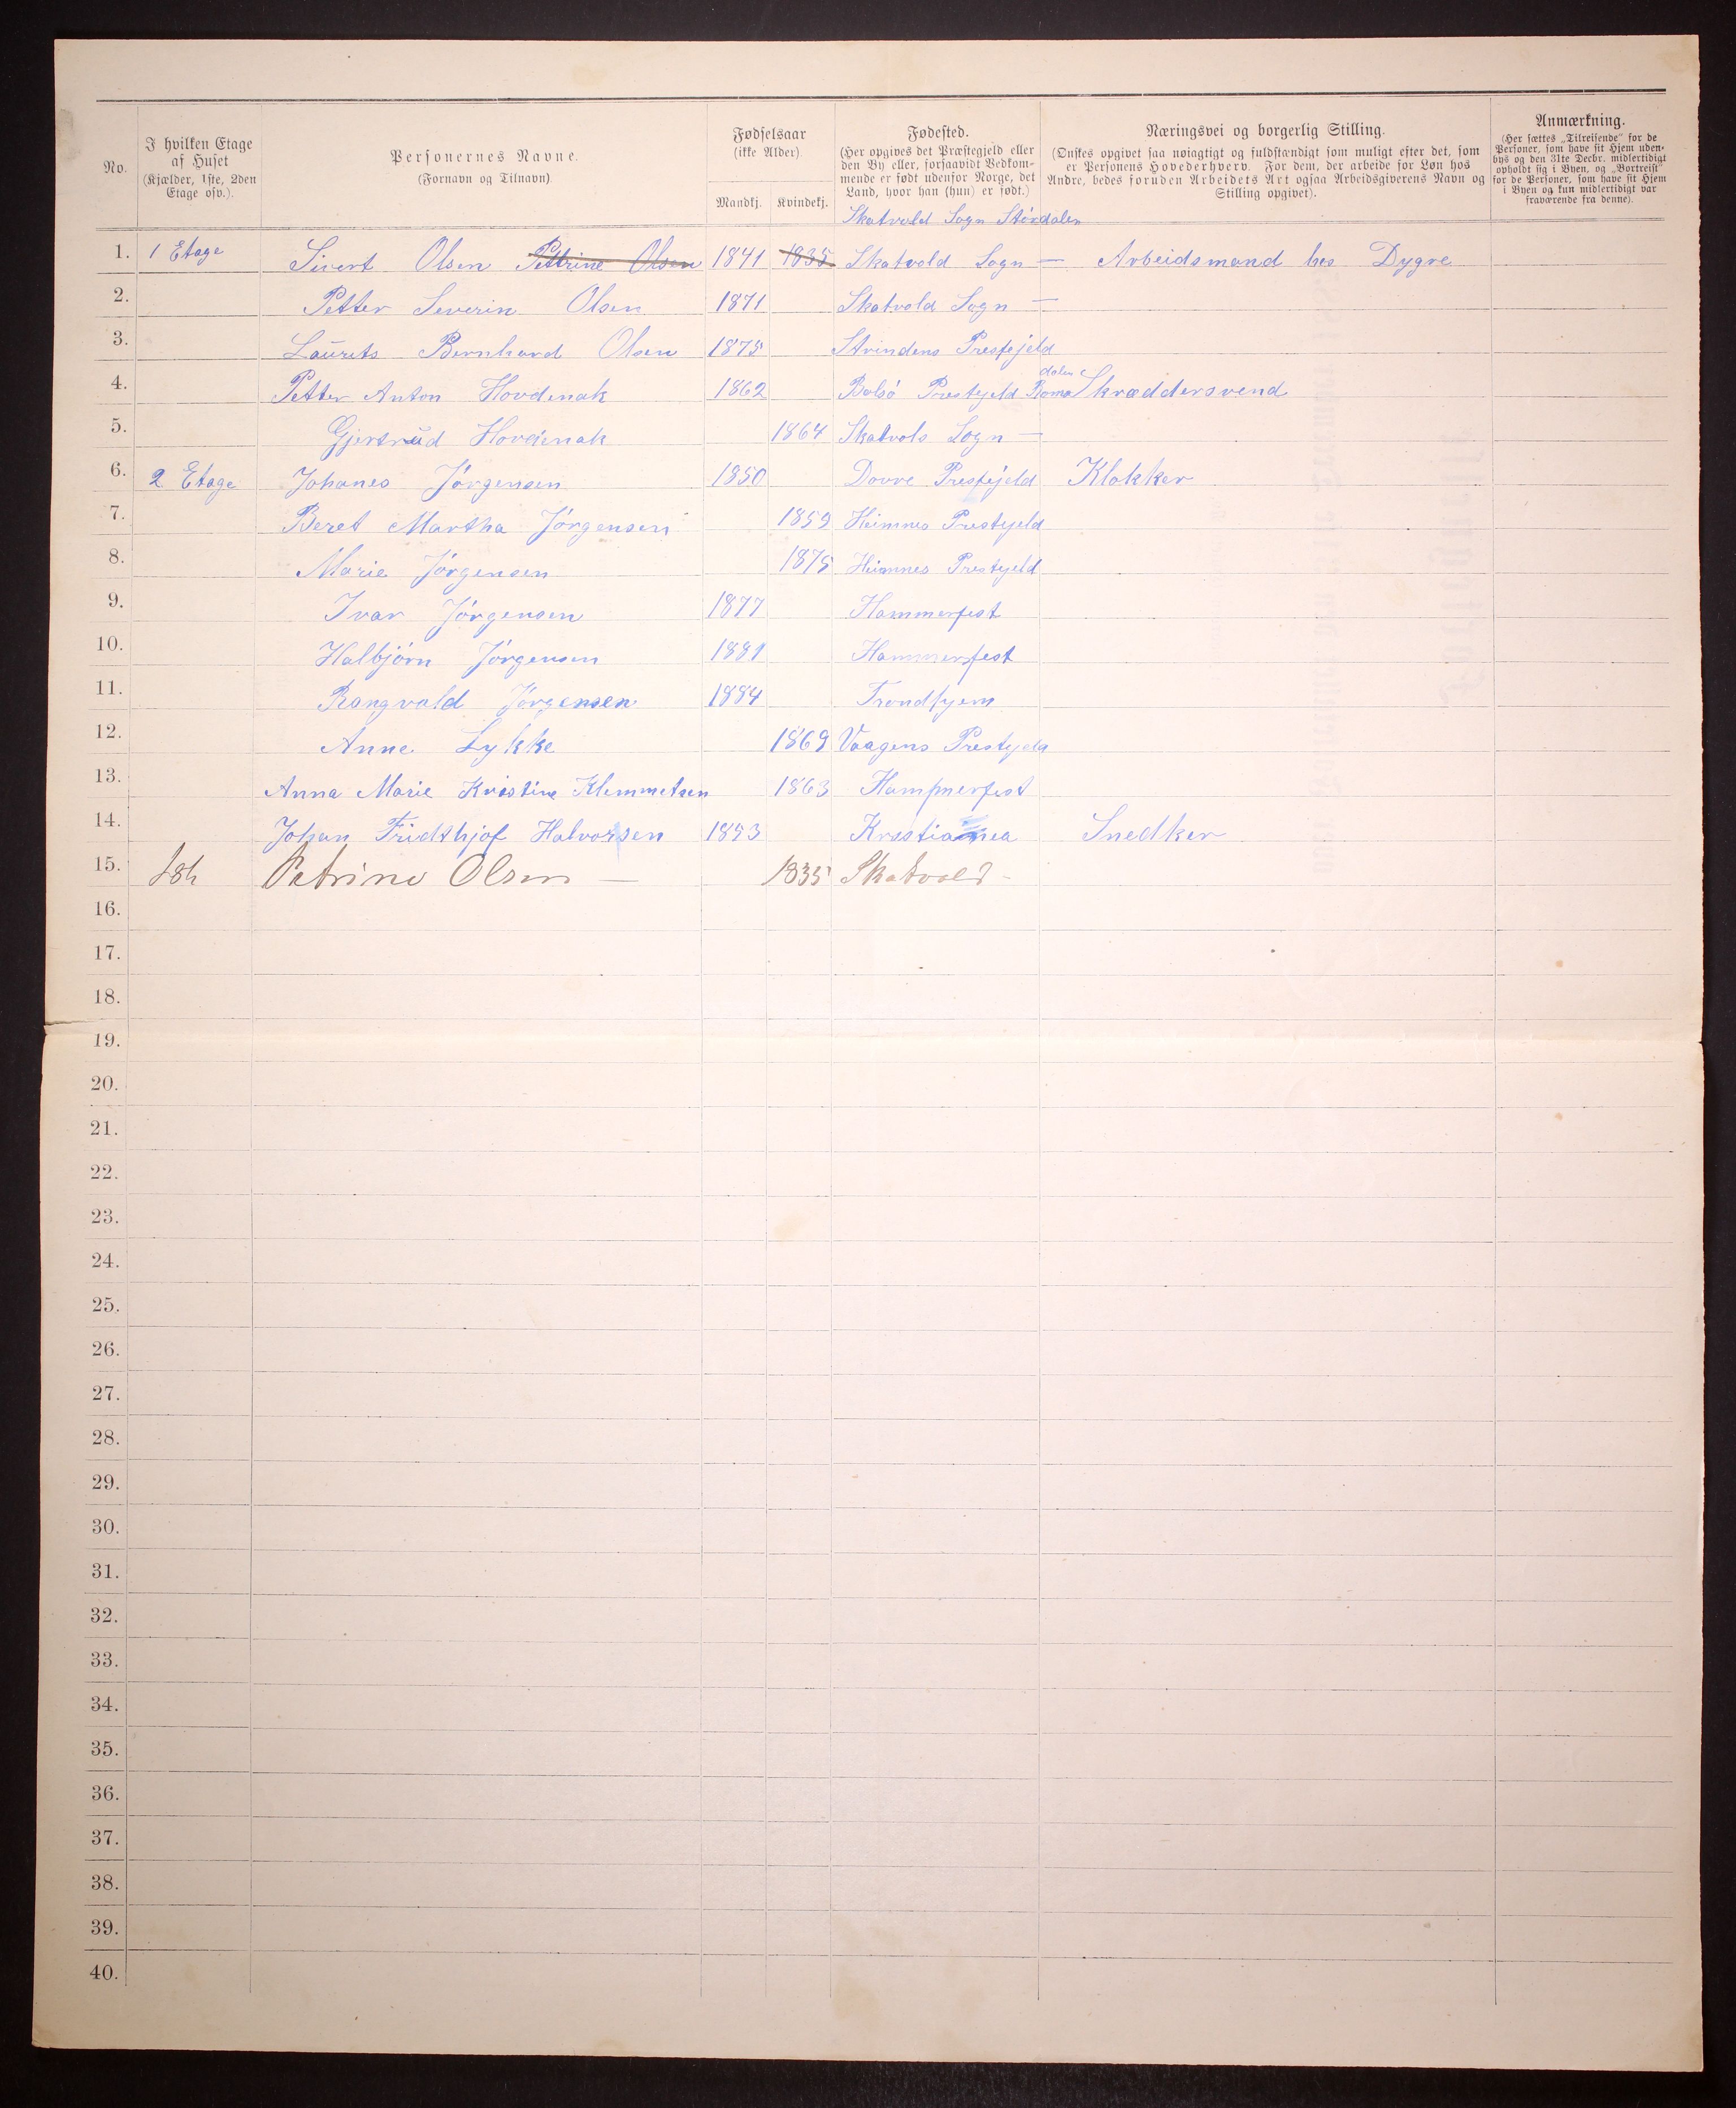 No.
I hvilken Etage af Huset
(Kjælder, 1ste, 2den Etage osv.).
Personernes Navne.
(Fornavn og Tilnavn)
Fødselsaar
(ikke Alder)
Mandkj. Kvindekj.
Fødested.
(Her opgives det Præstegjeld eller
den By eller, forsaavidt Vedkom-
mende er født udenfor Norge, det
Land, hvor han (hun) er født.)
Næringsvei og borgerlig Stilling.
(Ønskes opgivet saa nøiagtigt og fuldstændigt som muligt efter det, som
er Personens Hovederhverv. For dem, der arbeide for Løn hos
Andre, bedes foruden Arbeidets Art ogsaa Arbeidsgiverens Navn og
Stilling opgivet).
Anmærkning.
(Her sættes „Tilreisende" for de
Personer, som have sit Hjem uden-
bys og den 31te Decbr. midlertidigt
opholdt sig i Byen, og „Bortreist"
for de Personer, som have sit Hjem
i Byen og kun midlertidigt var
fraværende fra denne).
Skatvold Sogn Stördalen
1. 1 Etage Sivert Olsen Pettrine Olsen 1841 1835 Skatvold Sogn — Arbeidsmand hos Dygre
2. Petter Severin Olsen 1871 Skatvold Sogn —
3. Laurits Bernhard Olsen 1875 Strindens Prestejeld
dalen
4. Petter Anton Hovdenak 1862 Bolsö Prestejeld Roms Skræddersvend
5. Gjertrud Hovdenak 1864 Skatvols Sogn —
6. 2 Etage Johanes Jörgensen 1850 Dovre Prestejeld Klokker
7. Beret Martha Jörgensen 1852 Heimnes Prestejeld
8. Marie Jörgensen 1875 Heimnes Prestejeld
9. Ivar Jörgensen 1877 Hammerfest
10. Halbjörn Jörgensen 1881 Hammerfest
11. Rangvald Jörgensen 1884 Trondhjem
12. Anne Lykke 1869 Vaagens Prestejeld
13. Anna Marie Kristine Klemmetsen 1863 Hammerfest
14. Johan Fridthjof Halvorsen 1853 Krestiania Snedker
15. Petrine Olsen — 1835 Skatvold -
16.
17.
18.
19.
20.
21.
22.
23.
24.
25.
26.
27.
28.
29.
30.
31.
32.
33.
34.
35.
36.
37.
38.
39.
40.